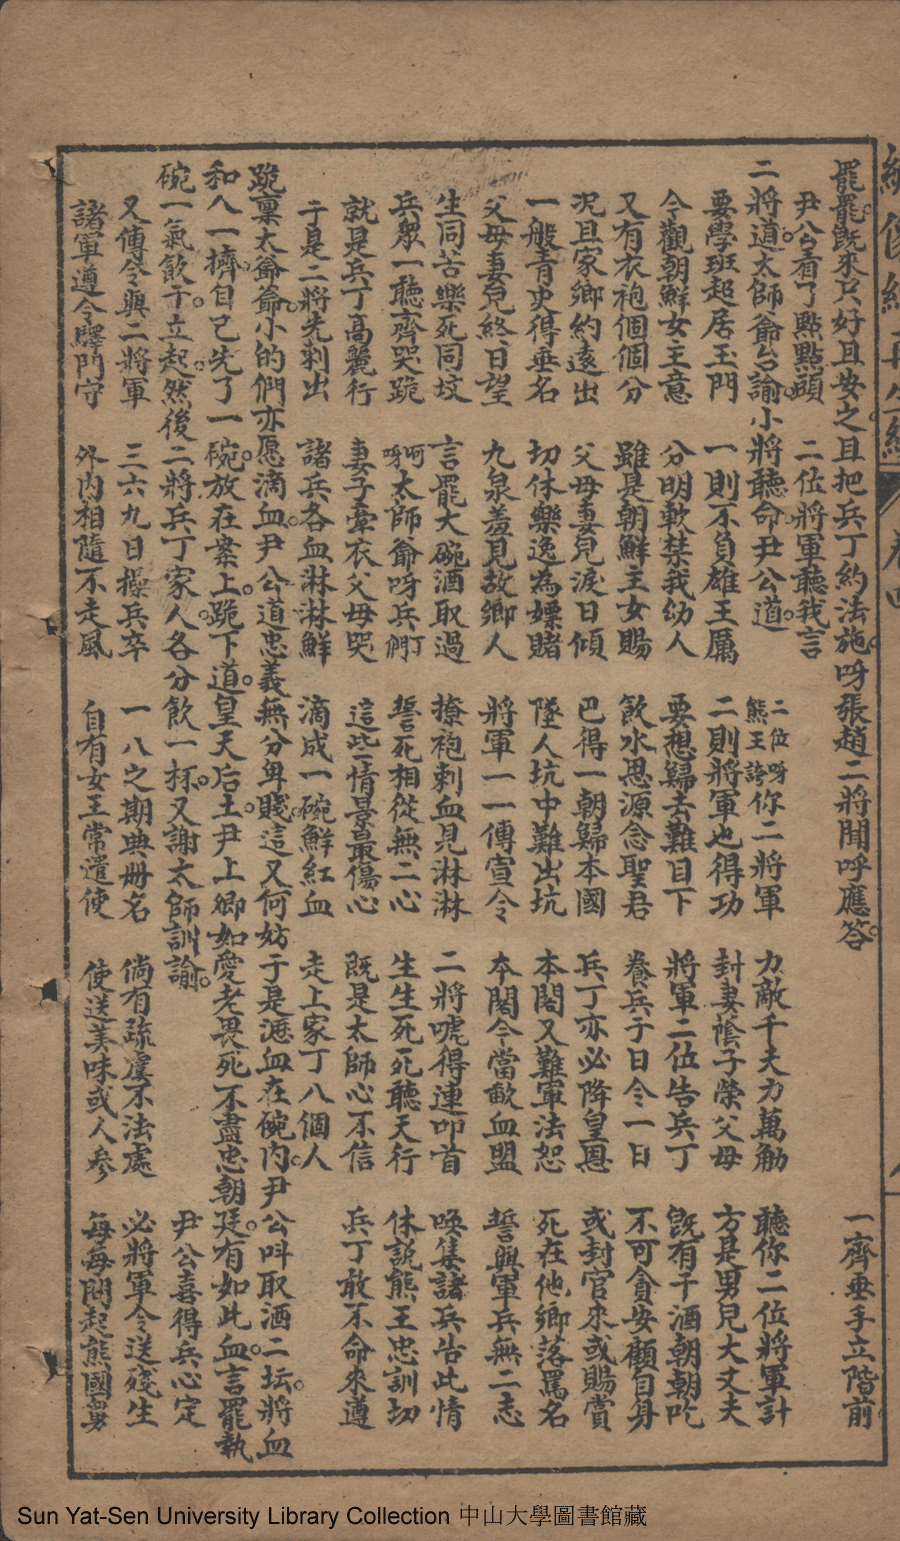 罷罷既來只好且安之且把兵丁約法施呀張趙二將聞呼應答 一齊垂手立階前
尹公看了點點頭 二位將軍聽我言
二將道太師爺台諭小將聽命尹公道 二位呀熊王誇你二將軍 力敵千夫力萬觔 聽你二位將軍計
要學班超居玉門 一則不負雄王厲 二則將軍也得功 封妻蔭子榮父母 方是男兒大丈夫
今觀朝鮮女主意 分明軟禁我幼人 要想歸去難目下 將軍二位告兵丁 既有干酒朝朝吃
又有衣袍個個分 雖是朝鮮主女賜 飲水思源念聖君 養兵于日令一日 不可貪安顧自身
况且家鄉約遠出 父母妻兒淚日傾 巴得一朝歸本國 兵丁亦必降皇恩 或封官來或賜賞
一般青史得垂名 切休樂逸為嫖賭 墜人坑中難出坑 本閣又難軍法恕 死在他鄉落罵名
父母妻兒終日望 九泉羞見故鄉人 將軍一一傳宣令 本閣今當歃血盟 誓與軍兵無二志
生同苦樂死同坟 言罷大碗酒取過 撩袍刺血見淋淋 二將唬得連叩首 喚集諸兵告此情
兵衆一聽齊哭跪 呵呀太師爺呀兵丁們 誓死相從無二心 生生死死聽天行 休說熊王忠訓切
就是兵丁高麗行 妻子牽衣父母哭 這些情景最傷心 既是太師心不信 兵丁敢不命來遵
于是二將先刺出 諸兵各血淋淋鮮 滴成一碗鮮紅血 走上家丁八個人
跪禀太爺爺小的們亦愿滴血尹公道忠義無分卑賤這又何妨于是瀝血在碗内尹公呌取酒二坛將血
和人一擠自己先了一碗放在案上跪下道皇天后土尹上卿如愛老畏死不盡忠朝廷有如此血言罷執
碗一氣飲于立起然後二將兵丁家人各分飲一杯又謝太師訓諭 尹公喜得兵心定
又傳令與二將軍 三六九日操兵卒 一八之期典册名 倘有疏虞不法處 必將軍令送殘生
諸軍遵令驛門守 外内相隨不走風 自有女王常遣使 使送美味或人参 每每問起熊國舅
Sun Yat-Sen University Library Collection 中山大學圖書館藏